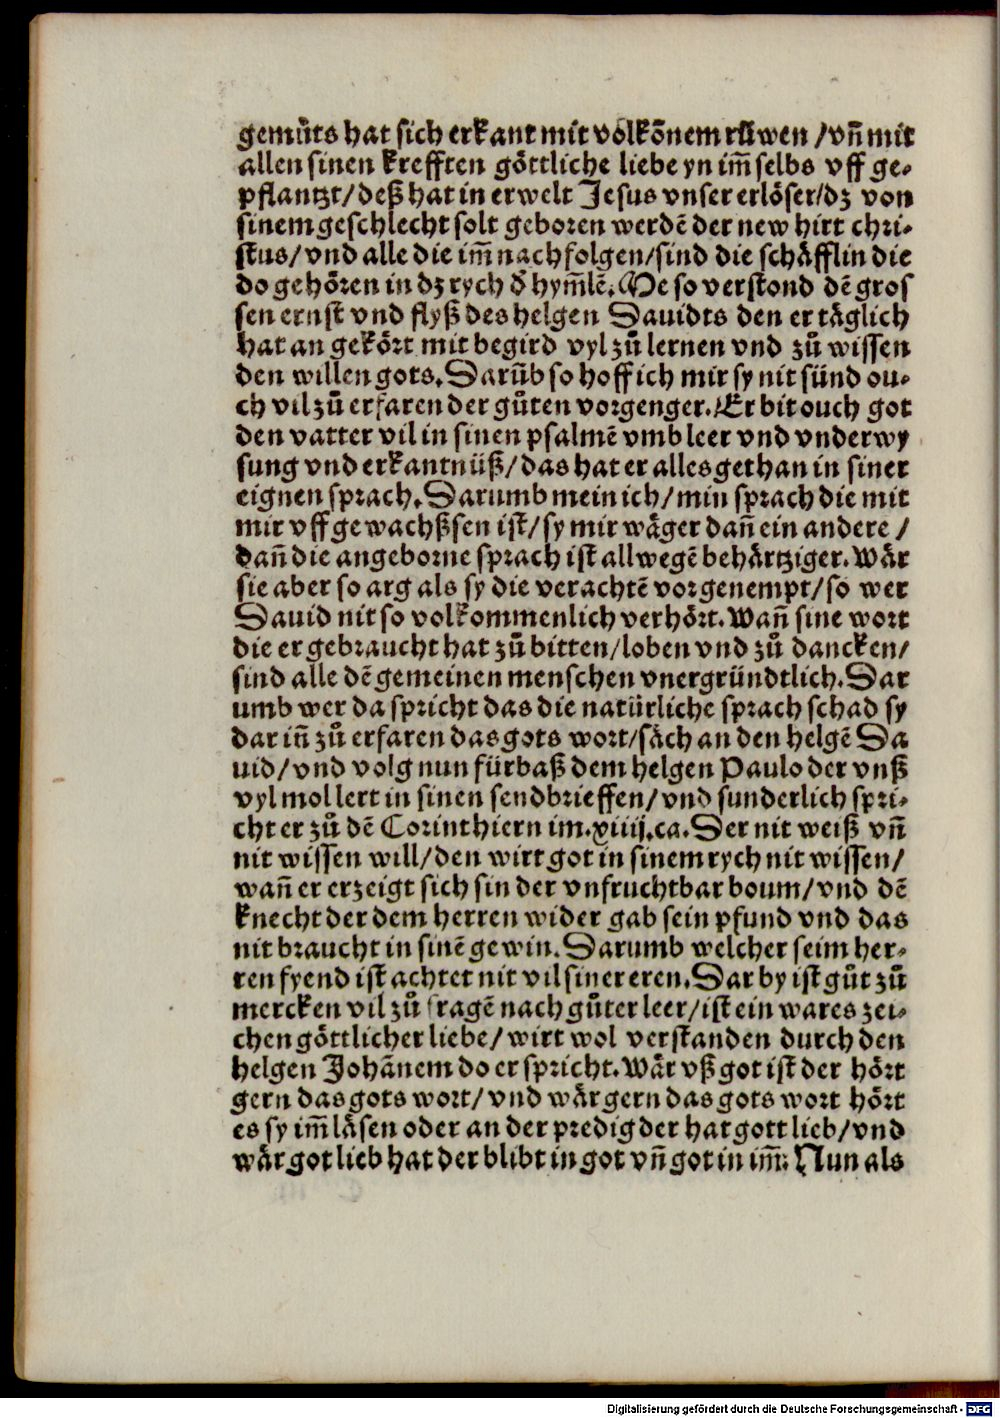 gemuͤts hat sich erkant mit volkõnem rüwen /vñ mit
allen sinen krefften göttliche liebe yn im̃ selbs vff ge⸗
pflantzt/deß hat in erwelt Jesus vnser erlöser/dz von
sinem geschlecht solt geboren werdẽ der new hirt chri⸗
stus/vnd alle die im̃ nachfolgen/sind die schäfflin die
do gehören in dz rych d̕ hym̃lẽ. Me so verstond dẽ gros
sen ernst vnd flyß des helgen Dauidts den er täglich
hat an gekört mit begird vyl zuͦ lernen vnd zuͦ wissen
den willen gots. Darũb so hoff ich mir sy nit sünd ou⸗
ch vil zuͦ erfaren der guͦten vorgenger. Er bit ouch got
den vatter vil in sinen psalmẽ vmb leer vnd vnderwy
sung vnd erkantnüß/das hat er alles gethan in siner
eignen sprach. Darumb mein ich/min sprach die mit
mir vff gewachßsen ist/sy mir wäger dañ ein andere /
dañ die angeborne sprach ist allwegẽ behärtziger. Wär
sie aber so arg als sy die verachtẽ vorgenempt/so wer
Dauid nit so volkommenlich verhört. Wañ sine wort
die er gebraucht hat zuͦ bitten/loben vnd zuͦ dancken/
sind alle dẽ gemeinen menschen vnergründtlich. Dar
umb wer da spricht das die natürliche sprach schad sy
dar iñ zuͦ erfaren das gots wort/säch an den helgẽ Da
uid/vnd volg nun fürbaß dem helgen Paulo der vnß
vyl mol lert in sinen sendbrieffen/vnd sunderlich spri⸗
cht er zuͦ dẽ Corinthiern im.xiiij.ca. Der nit weiß vñ
nit wissen will/den wirt got in sinem rych nit wissen/
wañ er erzeigt sich sin der vnfruchtbar boum/vnd dẽ
knecht der dem herren wider gab sein pfund vnd das
nit braucht in sinẽ gewin. Darumb welcher seim her⸗
ren fyend ist achtet nit vil siner eren. Dar by ist guͦt zuͦ
mercken vil zuͦ fragẽ nach guͦter leer/ist ein wares zei⸗
chen göttlicher liebe/wirt wol verstanden durch den
helgen Johãnem do er spricht. Wär vß got ist der hört
gern das gots wort/vnd wär gern das gots wort hört
es sy im̃ läsen oder an der predig der hat gott lieb/vnd
wär got lieb hat der blibt in got vñ got in im̃. Nun als
Digitalisierung gefördert durch die Deutsche Forschungsgemeinschaft - DFG